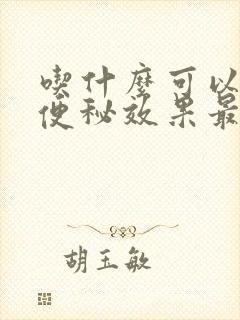 喫什麼可以
便秘效果最
胡玉敏